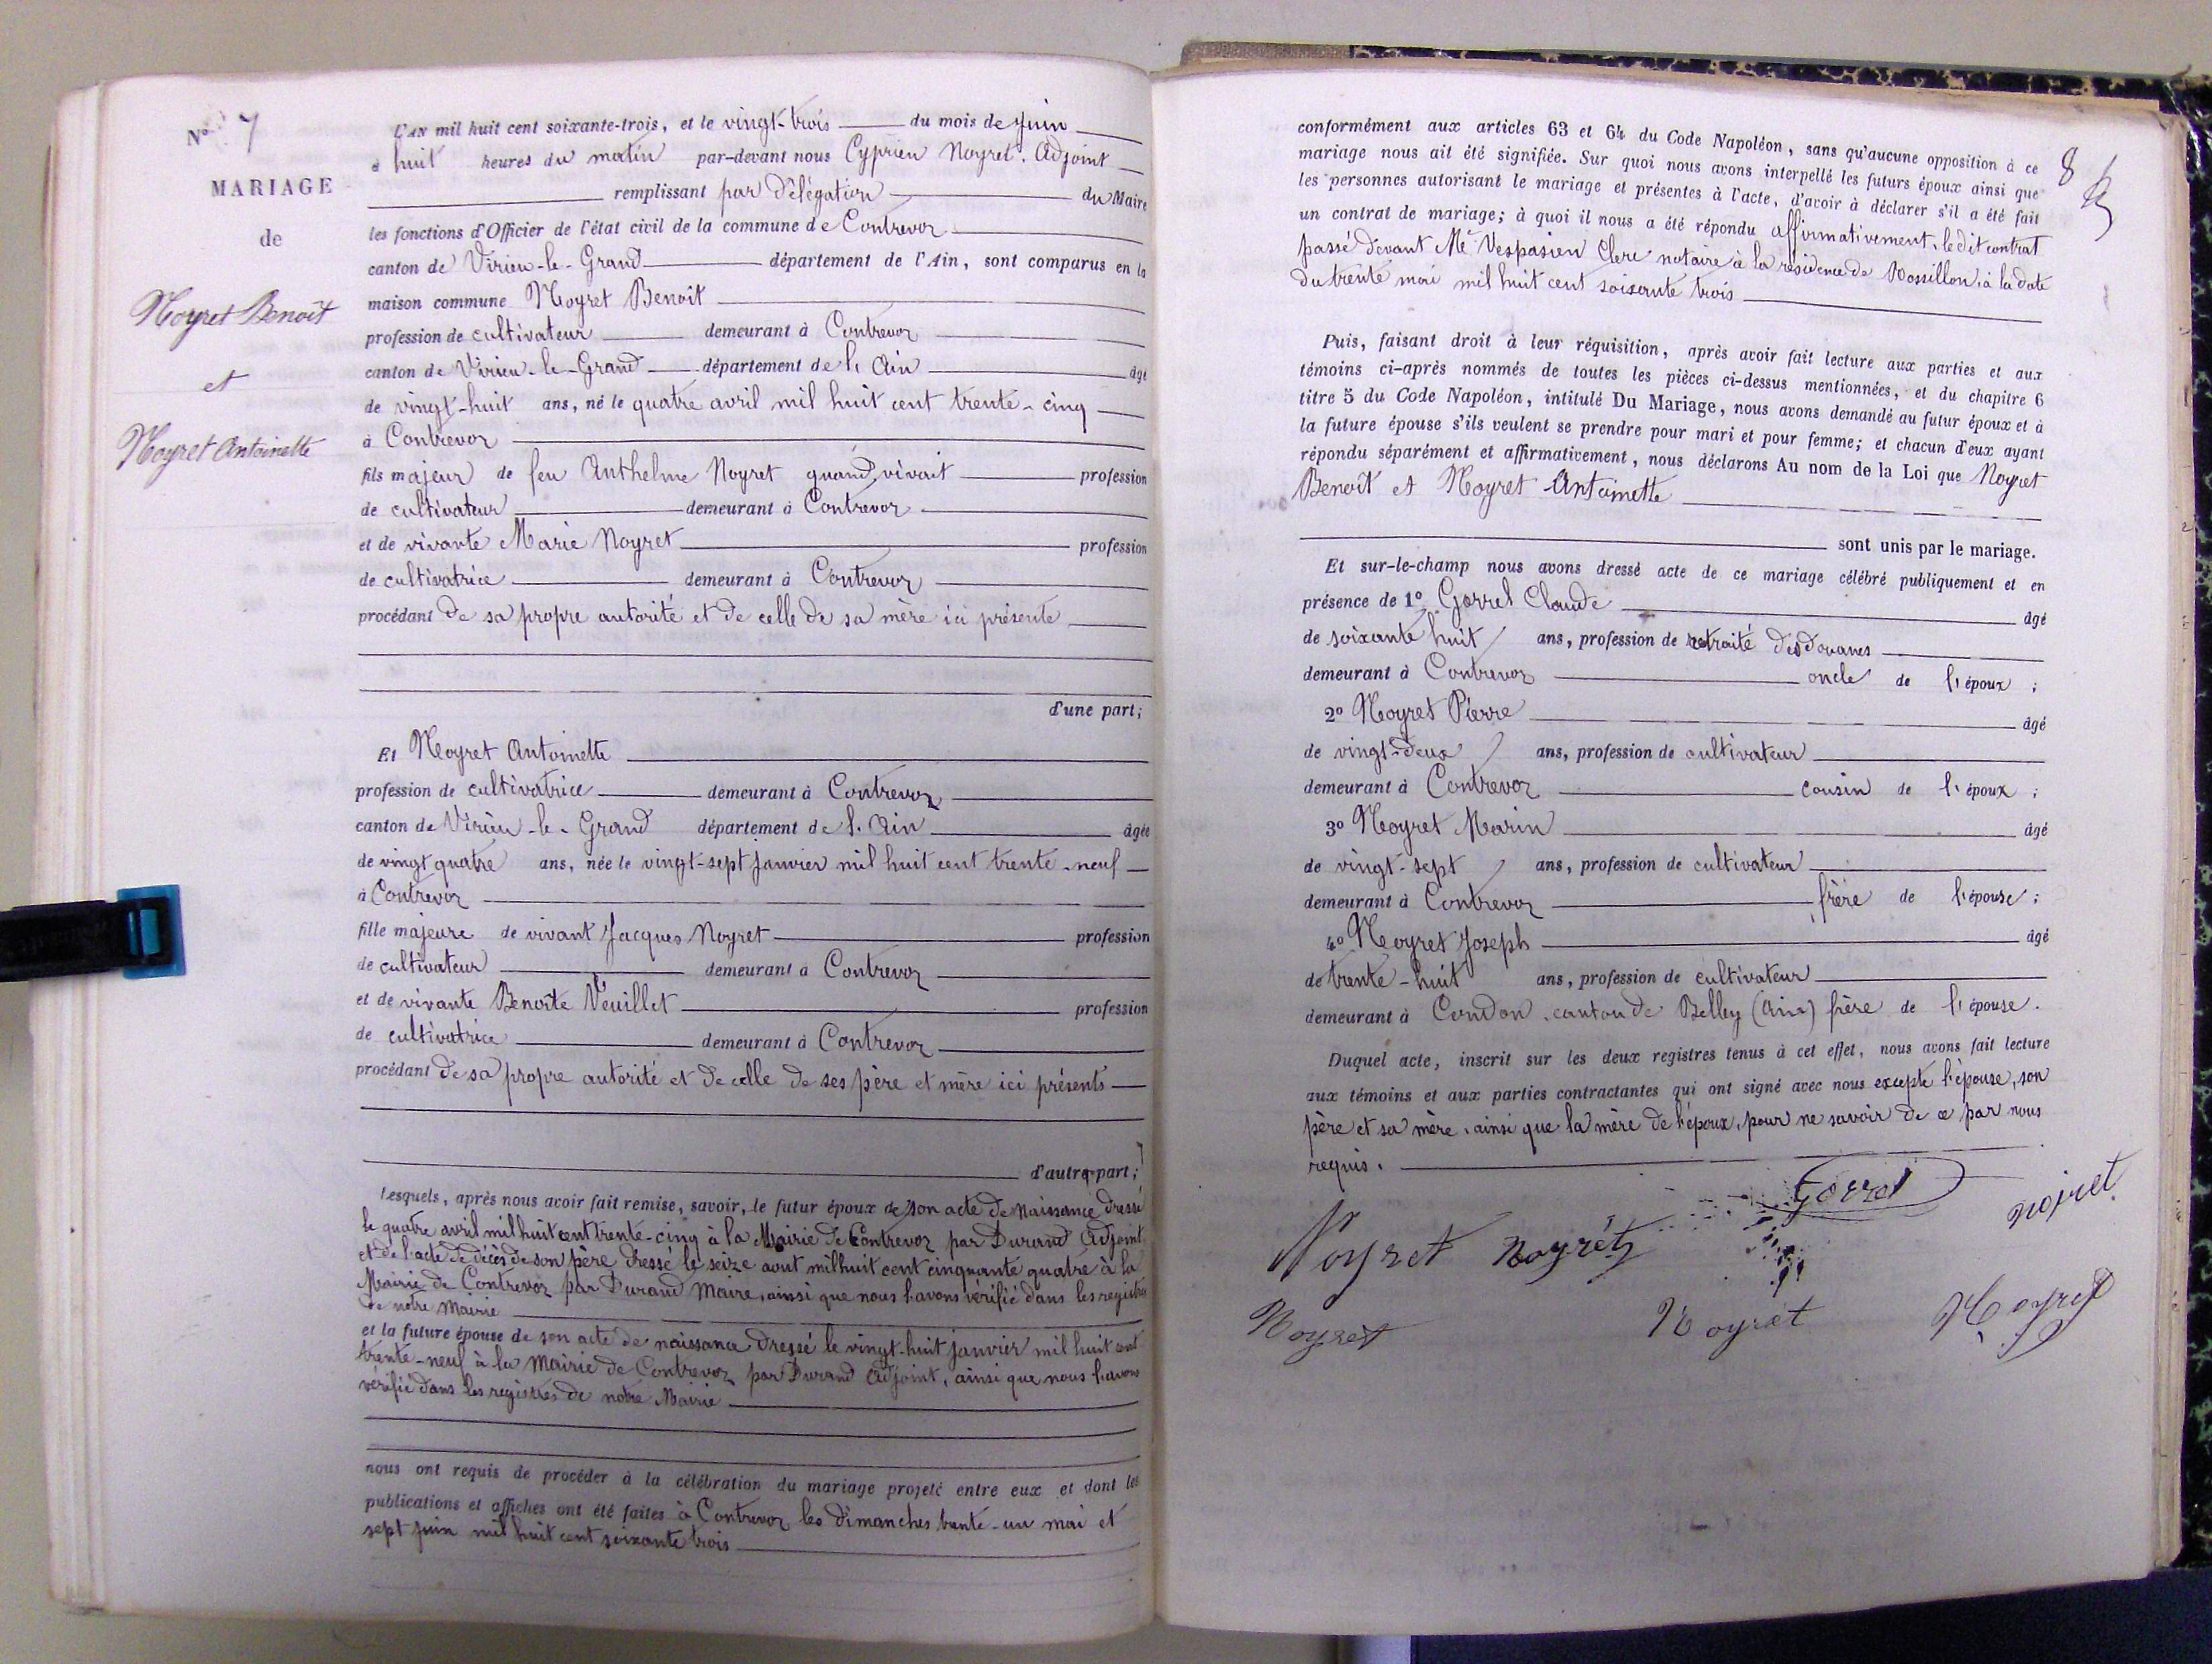 N° 7
MARIAGE
de
Noyret Benoît
et
Noyret Antoinette
L'AN mil huit cent soixante-trois, et le vingt-trois du mois de juin
à huit heures du matin par-devant nous Cyprien Noyret, Adjoint
remplissant par délégation du Maire
les fonctions d'Officier de l'état civil de la commune de Contrevoz
canton de Virieu-le-Grand département de l'Ain, sont comparus en la
maison commune Noyret Benoît
profession de cultivateur demeurant à Contrevoz
canton de Virieu-le-Grand département de l'Ain âgé
de vingt-huit ans, né le quatre avril mil huit cent trente-cinq
à Contrevoz
fils majeur de feu Anthelme Noyret quand vivait profession
de cultivateur demeurant à Contrevoz
et de vivante Marie Noyret profession
de cultivatrice demeurant à Contrevoz
procédant de sa propre autorité et de celle de sa mère ici présente
d'une part;
Et Noyret Antoinette
profession de cultivatrice demeurant à Contrevoz
canton de Virieu-le-Grand département de l'Ain âgée
de vingt quatre ans, née le vingt-sept janvier mil huit cent trente-neuf
à Contrevoz
fille majeure de vivant Jacques Noyret profession
de cultivateur demeurant à Contrevoz
et de vivante Benoîte Veuillet profession
de cultivatrice demeurant à Contrevoz
procédant de sa propre autorité et de celle de ses père et mère ici présents
d'autre part;
Lesquels, après nous avoir fait remise, savoir, le futur époux de son acte de Naissance dressé
le quatre avril mil huit cent trente-cinq à la Mairie de Contrevoz par Durand Adjoint,
et de l'acte de décès de son père dressé le seize aout mil huit cent cinquante quatre à la
Mairie de Contrevoz par Durand Maire, ainsi que nous l'avons vérifié dans les registres
de notre Mairie
et la future épouse de son acte de naissance dressé le vingt-huit janvier mil huit cent
trente-neuf à la Mairie de Contrevoz par Durand Adjoint, ainsi que nous l'avons
vérifié dans les registres de notre Mairie
nous ont requis de procéder à la célébration du mariage projeté entre eux et dont les
publications et affiches ont été faites à Contrevoz les dimanches trente-un mai et
sept juin mil huit cent soixante trois
8
conformément aux articles 63 et 64 du Code Napoléon, sans qu'aucune opposition à ce
mariage nous ait été signifiée. Sur quoi nous avons interpellé les futurs époux ainsi que
les personnes autorisant le mariage et présentes à l'acte, d'avoir à déclarer s'il a été fait
un contrat de mariage; à quoi il nous a été répondu affirmativement, le dit contrat
passé devant Me Vespasien Clerc notaire à la résidence de Rossillon, à la date
du trente mai mil huit cent soixante trois
Puis, faisant droit à leur réquisition, après avoir fait lecture aux parties et aux
témoins ci-après nommés de toutes les pièces ci-dessus mentionnées, et du chapitre 6
titre 5 du Code Napoléon, intitulé Du Mariage, nous avons demandé au futur époux et à
la future épouse s'ils veulent se prendre pour mari et pour femme; et chacun d'eux ayant
répondu séparément et affirmativement, nous déclarons Au nom de la Loi que Noyret
Benoît et Noyret Antoinette
sont unis par le mariage.
Et sur-le-champ nous avons dressé acte de ce mariage célébré publiquement et en
présence de 1° Gorrel Claude âgé
de soixante huit ans, profession de retraité des douanes
demeurant à Contrevoz oncle de l'époux ;
2° Noyret Pierre âgé
de vingt-deux ans, profession de cultivateur
demeurant à Contrevoz cousin de l'époux ;
3° Noyret Marin âgé
de vingt-sept ans, profession de cultivateur
demeurant à Contrevoz frère de l'épouse ;
4° Noyret Joseph âgé
de trente-huit ans, profession de cultivateur
demeurant à Condon, canton de Belley (Ain) frère de l'épouse.
Duquel acte, inscrit sur les deux registres tenus à cet effet, nous avons fait lecture
aux témoins et aux parties contractantes qui ont signé avec nous excepté l'épouse, son
père et sa mère, ainsi que la mère de l'époux, pour ne savoir de ce par nous
requis.
Gorrel
nojret
Noyret Noyret
Noyret Noyret Noyret